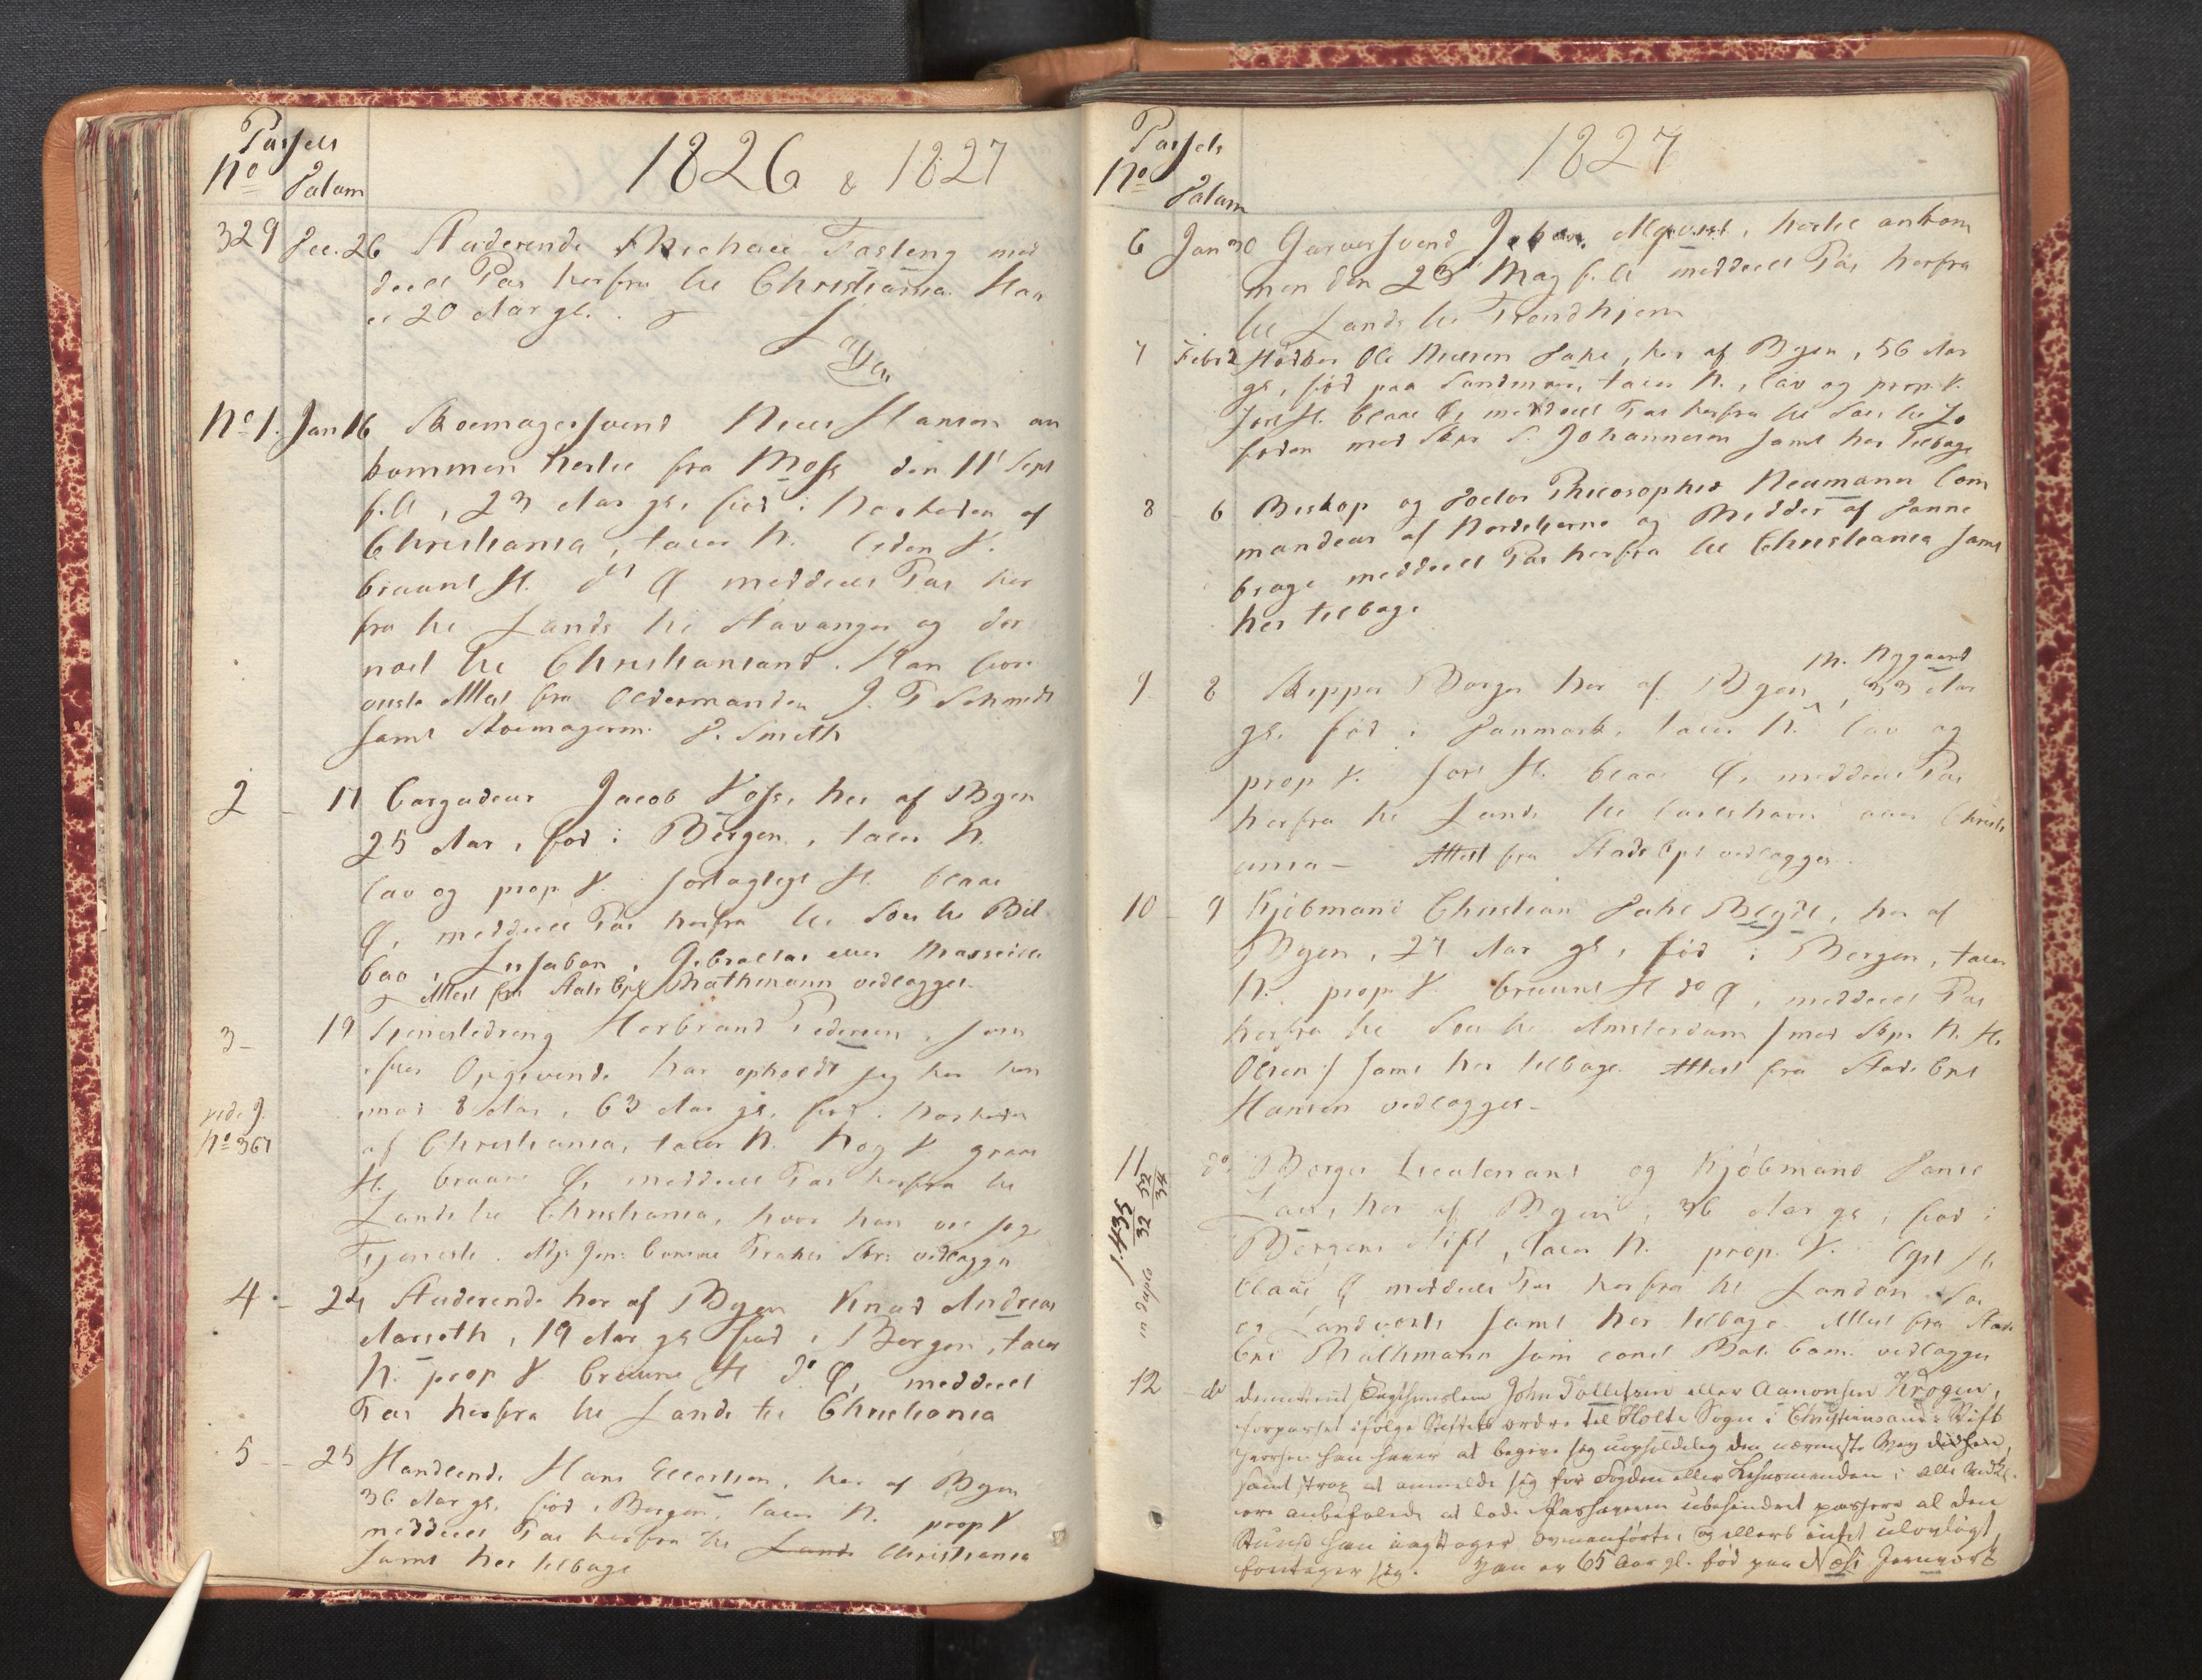 Passets
No Datum
1826 & 1827
329 Dec. 26 Studerende Michael Fasting med
deelt Pas herfra til Christiania. Han
er 20 Aar gl.
No 1. Jan 16 Skoemagersvend Niels Hansen an
kommen hertil fra Moss den 11 Sept
f. A, 23 Aar gl, fød i Nærheden af
Christiania, taler N. liden V.
bruunt H. do Ø meddeelt Pas her
fra til Lands til Stavanger og der
næst til Christiansand. Han fore
viiste Attest fra Oldermanden J. F Schmidt
samt Skoemagerm. D. Smith
2 - 17 Cargadeur Jacob Voss, her af Byen
25 Aar, fød i Bergen, taler N.
lav og prop. V. sortagtigt H. blaae
Ø, meddeelt Pas herfra til Søes til Bil
bao, Lissabon, Gibraltar eller Marseille
Attest fra Stads Cpt Rathmann vedlægges.
3 - 19 Tjenestedreng Herbrand Pedersen, som
efter Opgivende har opholdt sig her hen
imod 8 Aar, 63 Aar gl, fød i Nærheden
vide J.
No 367
af Christiania, taler N. høg V graae
H, bruune Ø, meddeelt Pas herfra til
Lands til Christiania, hvor han vil søge
Tjeneste.
vedlægges
4 - 24 Studerende her af Byen Knud Andreas
Aarseth, 19 Aar gl fød i Bergen, taler
N. prop V bruune H do Ø, meddeelt
Pas herfra til Lands til Christiania
5 - 25 Handlende Hans Ellertsen, her af Byen
36 Aar gl, fød i Bergen, taler N. prop V
meddeelt Pas herfra til Lands Christiania
samt her tilbage
Passets
No Datum
1827
6 Jan 30 Garversvend Johan Almqvist, hertil ankom
men den 23 Maj f. A meddeelt Pas herfra
til Lands til Trondhjem
7 Febr 2 Bødker Ole Nielsen Dahl, her af Byen, 56 Aar
gl, fød paa Søndmør, taler N., lav og prop. V.
sort H. blaae Ø, meddeelt Pas herfra til Søes til Flo
røen med Skpr S. Johannesen samt her tilbage
8 - 6 Biskop og Doctor Philosophiæ Neumann Com
mandeur af Nordstjerne og Ridder af Danne
broge meddeelt Pas herfra til Christiania samt
her tilbage
9 - 8 Skipper Borger her af Byen M. Nygaard, 33 Aar
gl, fød i Danmark, taler N. lav og
prop V. sort H. blaae Ø, meddeelt Pas
herfra til Lands til Carlshavn over Christi
ania - Attest fra Stads Cpt vedlægges.
10 - 9 Kjøbmand Christian Dahl Blydt, her af
Byen, 27 Aar gl, fød i Bergen, taler
N. prop V. bruunt H do Ø, meddeelt Pas
herfra til Søes til Amsterdam /: med Skpr N. H.
Olsen :/ samt her tilbage. Attest fra Stads Cpt
Hansen vedlægges -
11 do Borger Lieutenant og Kjøbmand Daniel
her af Byen, 36 Aar gl, fød i
Bergens Stift, taler N. prop. V. lyst H
blaae Ø meddeelt Pas herfra til London Søe
og Landværts samt her tilbage. Attest fra Stads
Cpt Rathmann som const Bat. Com. vedlægges
12 - do Demitteret Tugthuuslem John Tollefsen eller Aanonsen Krogen,
forpasset ifølge Stiftets ordre til Holts Sogn i Christiansands Stift
hvorhen han haver at begive sig uopholdelig den nærmeste Vey
samt strax at anmelde sig for Fogden eller Lehnsmanden; alle Vedk.
ere anbefalede at lade Passhaveren ubehindret passere al den
Stund han iagttager ovenanførte, og ellers intet ulovligt
foretager sig. Han er 65 Aar gl. fød paa Næss Jernværk